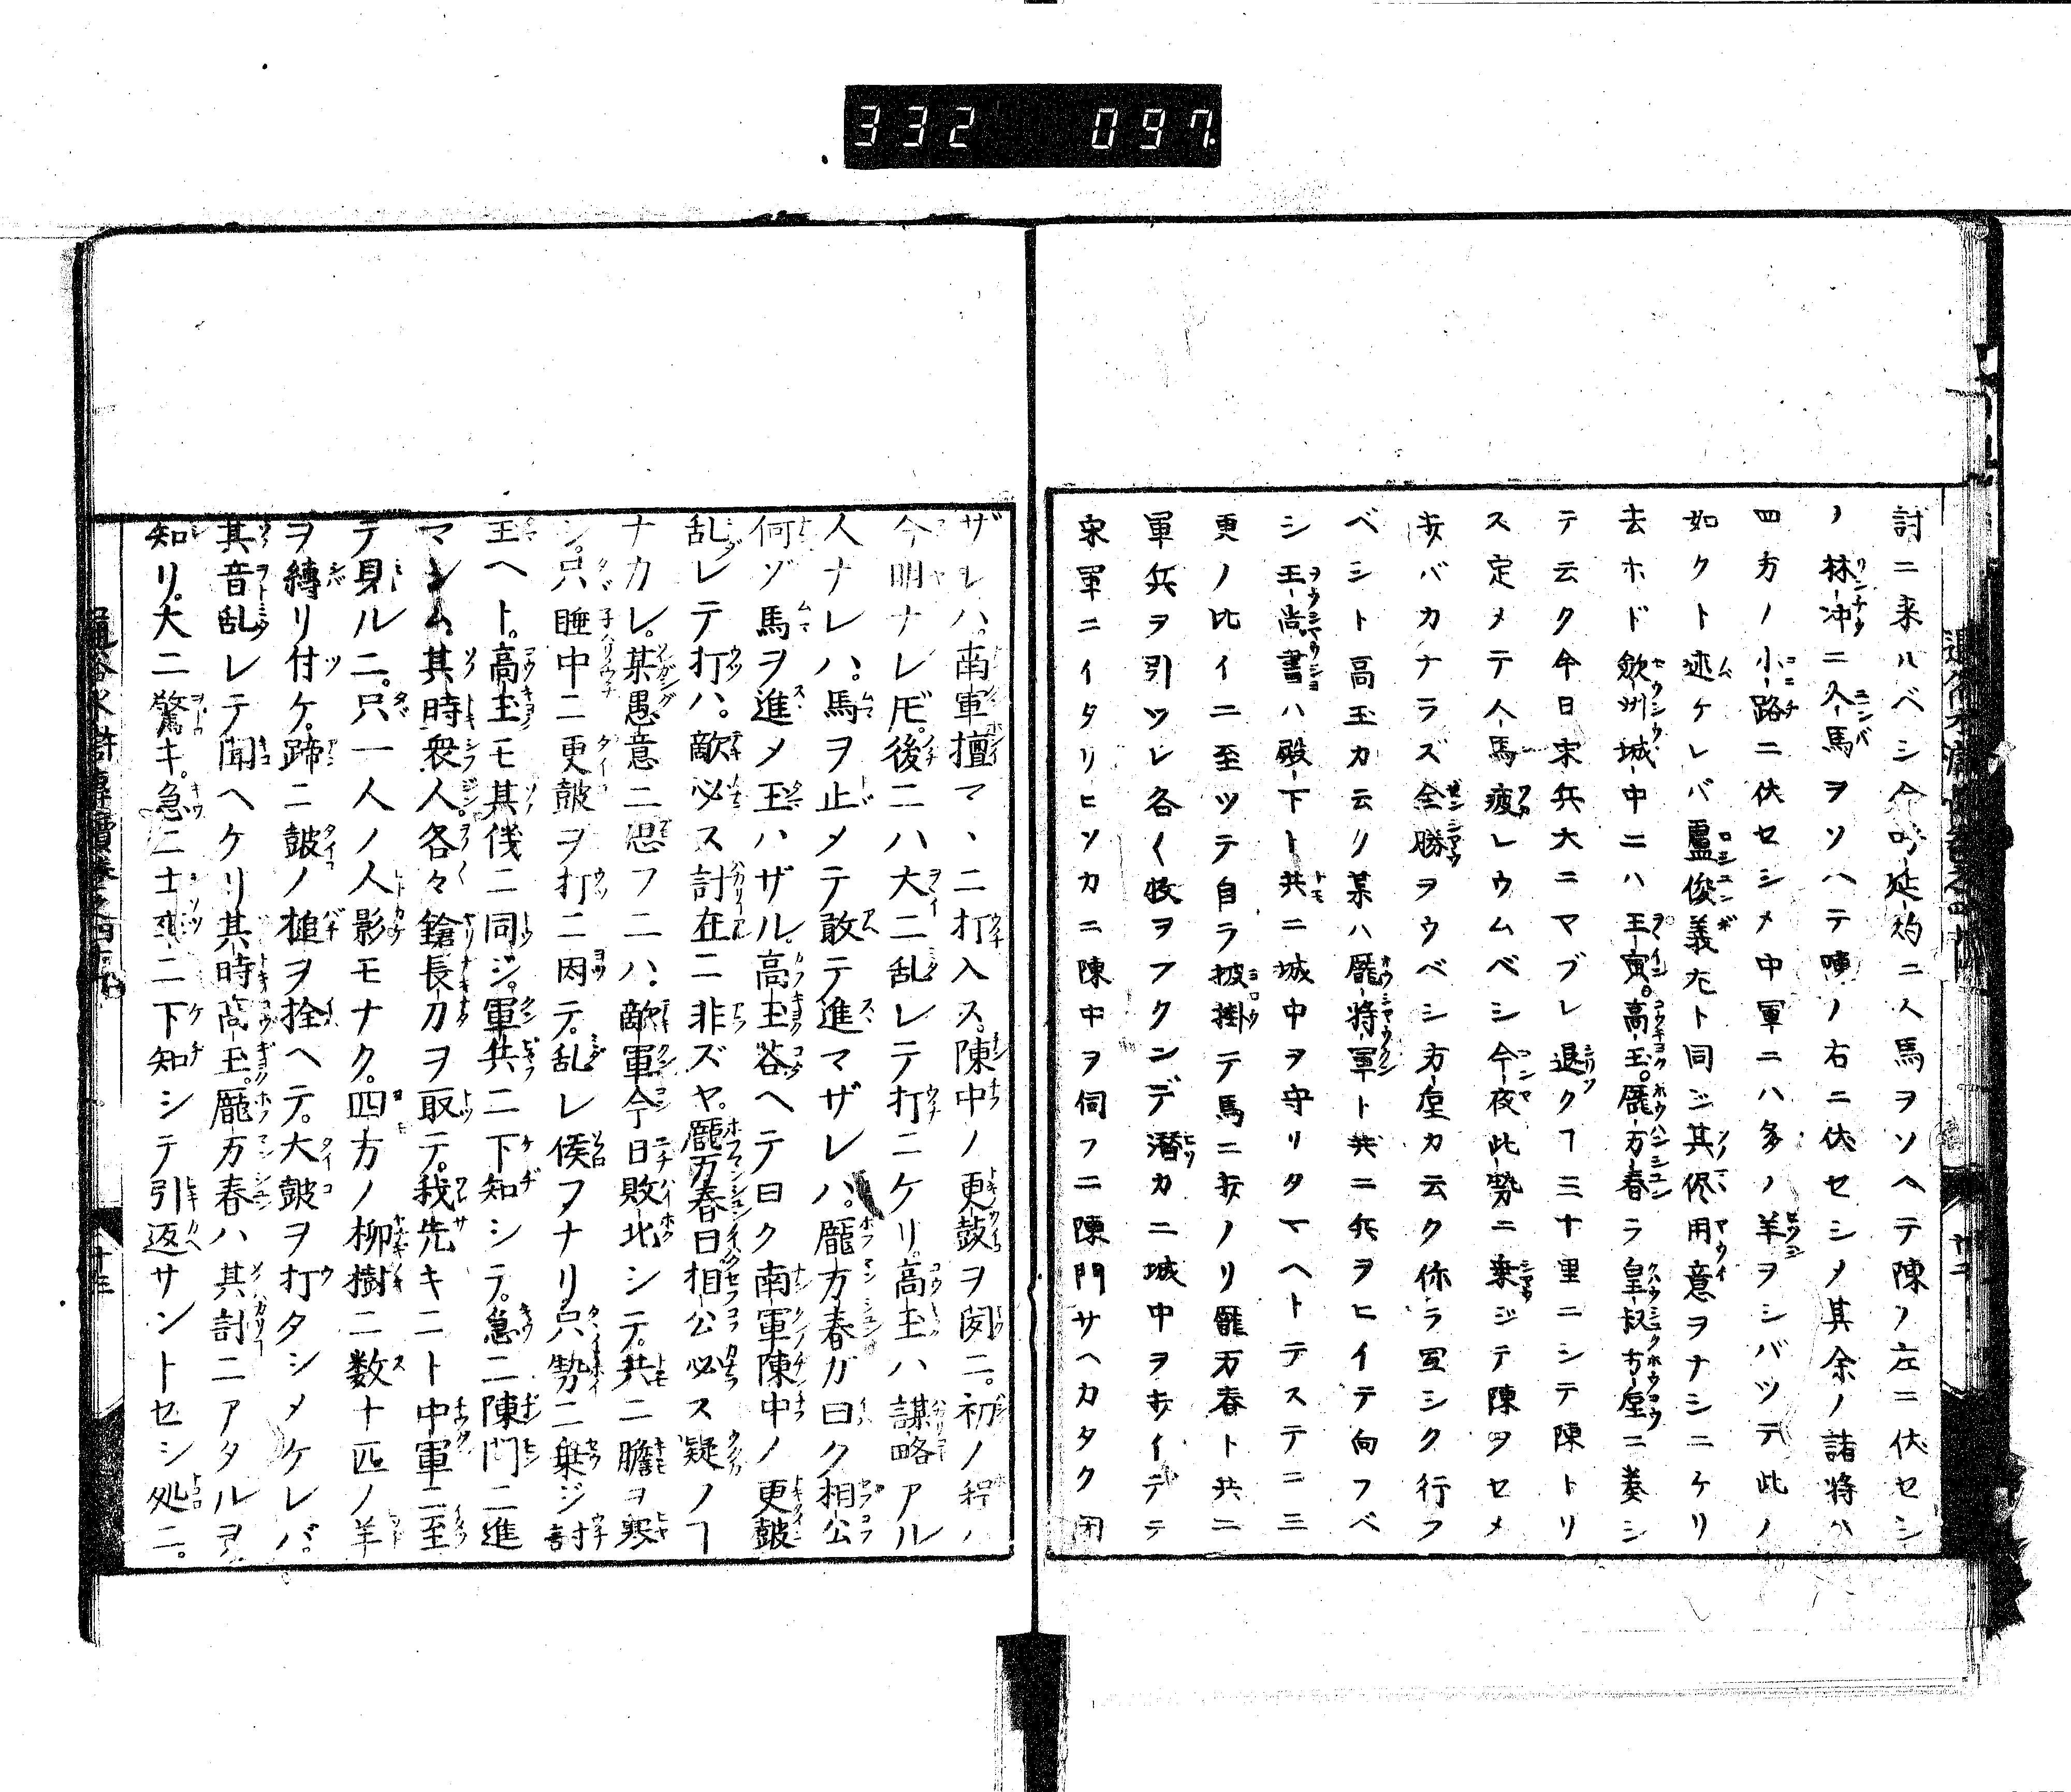 332 097
討ニ来ルベシ今呼延灼ニ人馬ヲソヘテ陳ノ左ニ伏セシ
メ林冲ニ人馬ヲソハテ陳ノ右ニ伏セシメ其余ノ諸将ハ
四方ノ小路ニ伏セシメ中軍ニハ多ノ羊ヲシバツテ此ノ
如クト述ケレバ盧俊義尤ト同ジ其侭用意ヲナシニケリ
去ホド歙州城中ニハ王寅。高玉。龐万春ラ皇叔方垕ニ奏シ
テ云ク今日宋兵大ニマブレ退クヿ三十里ニシテ陳トリ
ス定メテ人馬疲レウムベシ今夜此勢ニ乗ジテ陳ヲセメ
ホバカナラズ全勝ヲウベシ方垕カ云ク你ラ宜シク行フ
ベシト高玉カ云ク某ハ龐将軍ト共ニ兵ヲヒイテ向フベ
シ王尚書ハ殿下ト共ニ城中ヲ守リタマヘトテステニ三
更ノ比イニ至ツテ自ラ披掛テ馬ニホノリ龐万春ト共ニ
軍兵ヲ引ツレ各〱枚ヲフクンデ潜カニ城中ヲホイテテ
宋軍ニイタリヒソカニ陳中ヲ伺フニ陳門サヘカタク閉
ザレハ。南軍擅マヽニ打入ス。陳中ノ更鼓ヲ閔ニ。初ノ程ハ
今明ナレ𪜈。後ニハ大ニ乱レテ打ニケリ。高玉ハ謀略アル
人ナレハ。馬ヲ止メテ敢テ進マザレハ。龐万春ガ曰ク相公
何ゾ馬ヲ進メ玉ハザル。高玉答ヘテ曰ク南軍陳中ノ更鼓
乱レテ打ハ。敵必ス計在ニ非ズヤ。龐万春曰相公必ス疑ノヿ
ナカレ。某愚意ニ思フニハ。敵軍今日敗北シテ。共ニ膽ヲ寒
シ。只睡中ニ更鼓ヲ打ニ因テ。乱レ候フナリ只勢ニ乗ジ討
玉ヘト。高玉モ其儀ニ同ジ。軍兵ニ下知シテ。急ニ陳門ニ進
マシム。其時衆人。各々鎗長刀ヲ取テ。我先キニト中軍ニ至
テ見ルニ。只一人ノ人影モナク。四方ノ柳樹ニ数十匹ノ羊
ヲ縛リ付ケ。蹄ニ鼓ノ槌ヲ拴ヘテ。大鼓ヲ打タシメケレバ。
其音乱レテ聞ヘケリ其時高玉。龐万春ハ其計ニアタルヲ
知リ。大ニ驚キ。急ニ士卒ニ下知シテ引返サントセシ処ニ。